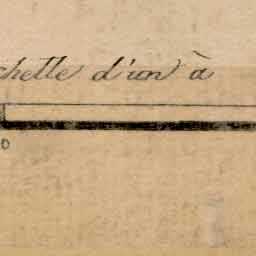 chelle d'un à
0